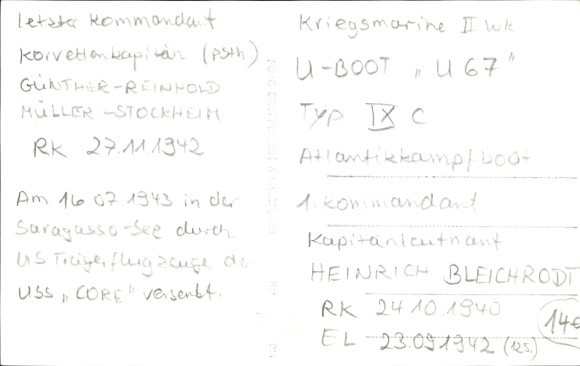 letzter Kommandant
Korvettenkapitän (psth)
GÜNTHER-REINHOLD
MÜLLER-STOCKHEIM
RK 27.11.1942
Am 16 07 1943 in der
Saragasso-See durch
US Trägerflugzeuge de
USS „CORE" versenkt.
Kriegsmarine II WK
U-BOOT „U 67"
Typ IX C
Atlantikkampfboot
1. Kommandant
Kapitänleutnant
HEINRICH BLEICHRODT
RK 24 10.1940
EL 23.09 1942 (125.)
14€